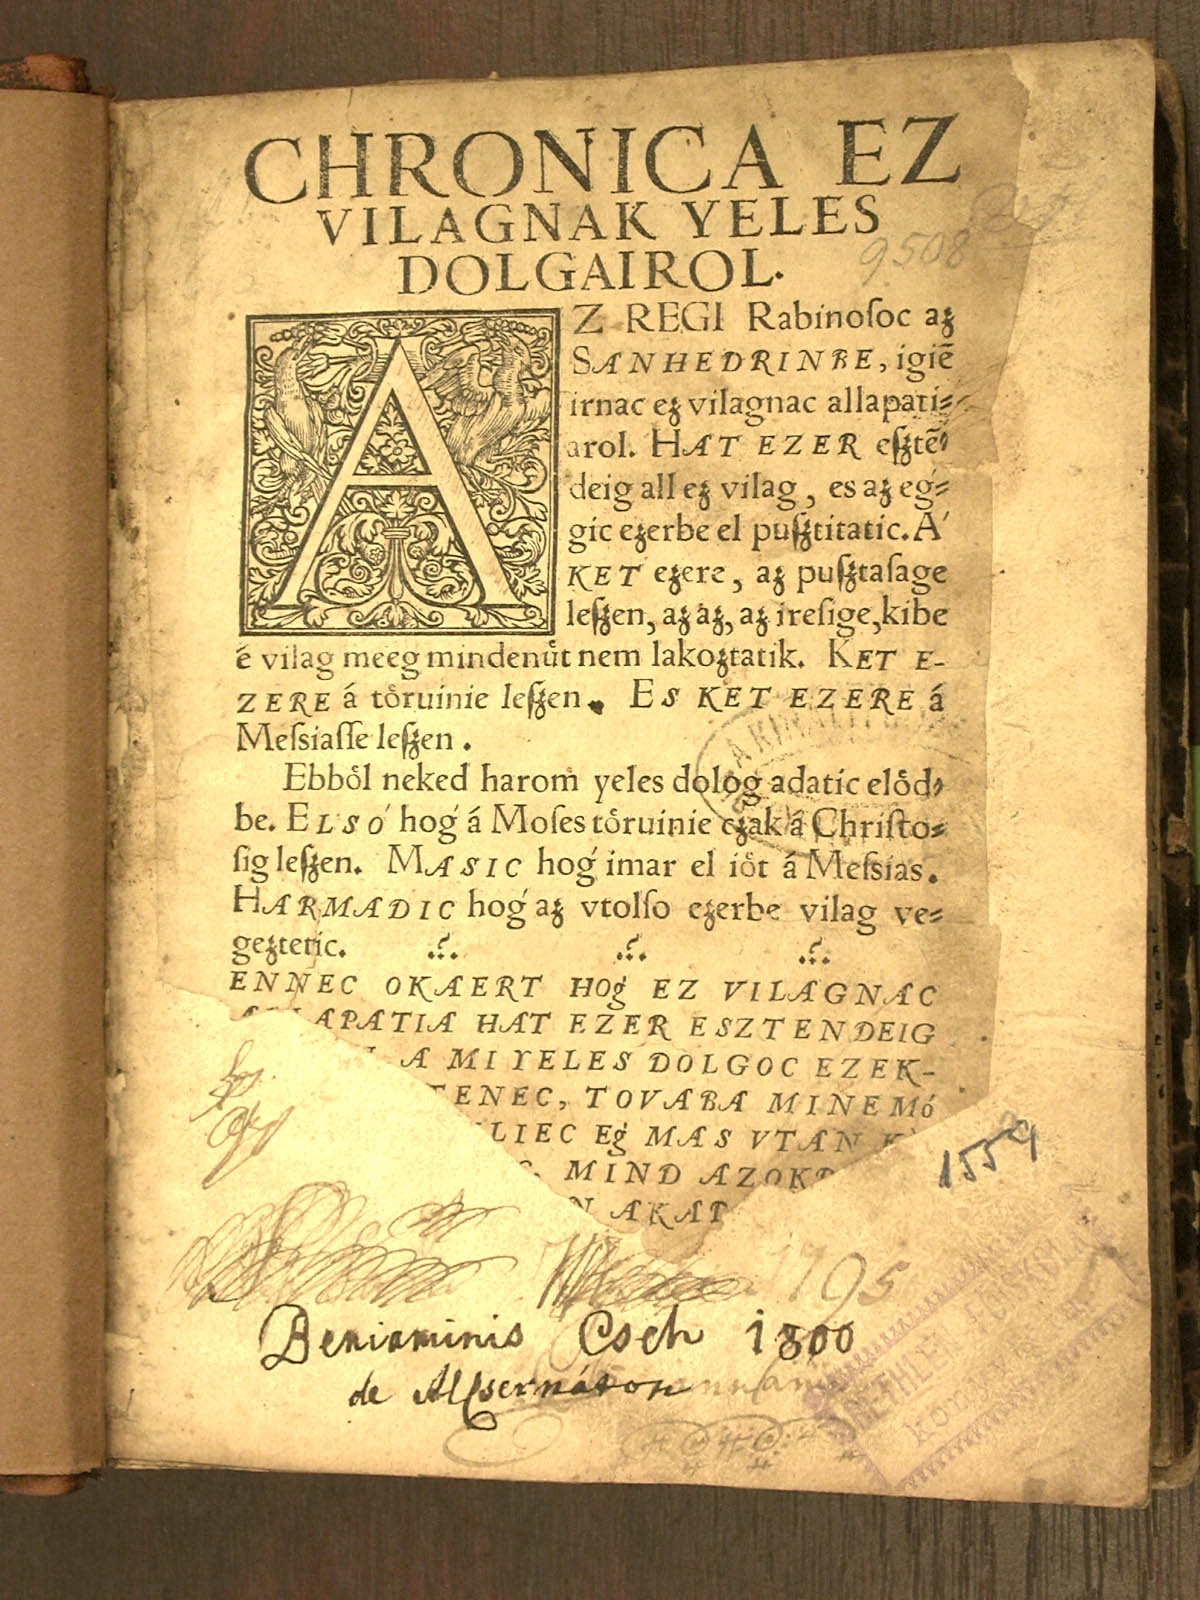 CHRONICA EZ
VILAGNAK YELES
DOLGAIROL.
9508
AZ REGI Rabinoſoc aʒ
SANHEDRINBE, igiē
irnac eʒ vilagnac allapati⸗
arol. HAT EZER eſʒtē⸗
deig all eʒ vilag, es aʒ eǵ⸗
gic eʒerbe el puſʒtitatic. A'
KET eʒere, aʒ puſʒtaſage
leſʒen, aʒ aʒ, aʒ ireſige, kibe
é vilag meeg mindenůt nem lakoʒtatik. KET E-
ZERE á tőruinie leſʒen. ES KET EZERE á
Meſsiaſſe leſʒen.
Ebből neked harom yeles dolog adatic előd⸗
be. ELSÓ hoǵ á Moſes tőruinie cʒak á Chriſto⸗
ſig leſʒen. MASIC hoǵ imar el iőt á Meſsias.
HARMADIC hoǵ aʒ vtolſo eʒerbe vilag ve⸗
geʒtetic.
ENNEC OKAERT HOǵ EZ VILAGNAC
APATIA HAT EZER ESZTENDEIG
A MI YELES DOLGOC EZEK-
TENEC, TOVABA MINEMó
LIEC Eǵ MAS VTAN
MIND AZOK
AKAR
1559
1795
Beniaminis Cseh 1800
de Alsernáton